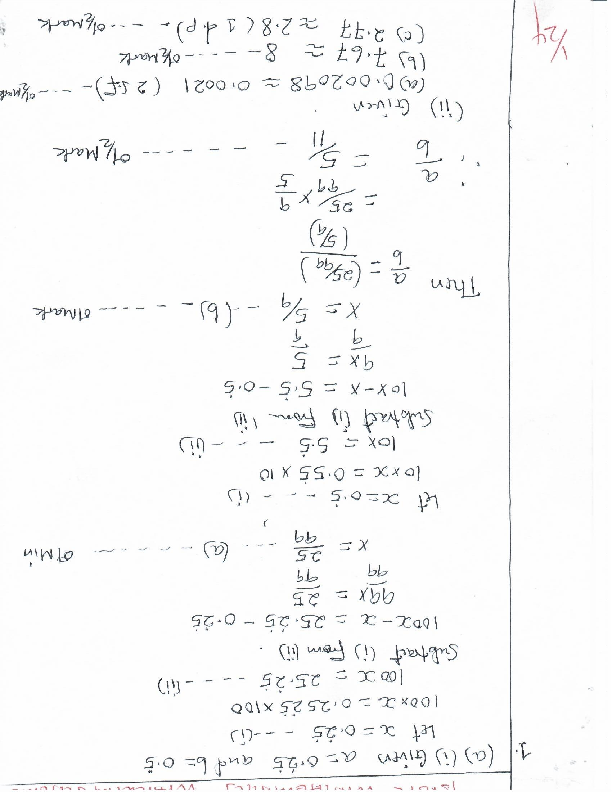 1. (a) (i) Given a = 0.2̇5̇ and b = 0.5̇
Let x = 0.2̇5̇ - - - (i)
100 × x = 0.252̇5̇ × 100
100x = 25.2̇5̇ - - - - (ii)
Subtract (i) from (ii).
100x - x = 25.2̇5̇ - 0.2̇5̇
99x = 25
99 99
x = 25/99 --- (a) - - - - - -
Let x = 0.5̇ - - - (i)
10 × x = 0.55̇ × 10
10x = 5.5̇ - - - (ii)
Subtract (i) from (ii)
10x - x = 5.5̇ - 0.5̇
9x = 5
9 9
x = 5/9 -- (b) - - - - - - 01Mark
Then a/b = (25/99)/(5/9)
= 25/99 × 9/5
∴ a/b = 5/11 - - - - - - - 0½Mark
(ii) Given
(a) 0.002098 ≈ 0.0021 (2 s.f) - - - 0½Mark
(b) 7.67 ≈ 8 - - - - - - 0½Mark
(c) 2.77 ≈ 2.8 (1 d.p) - - - - 0½Mark
1/24